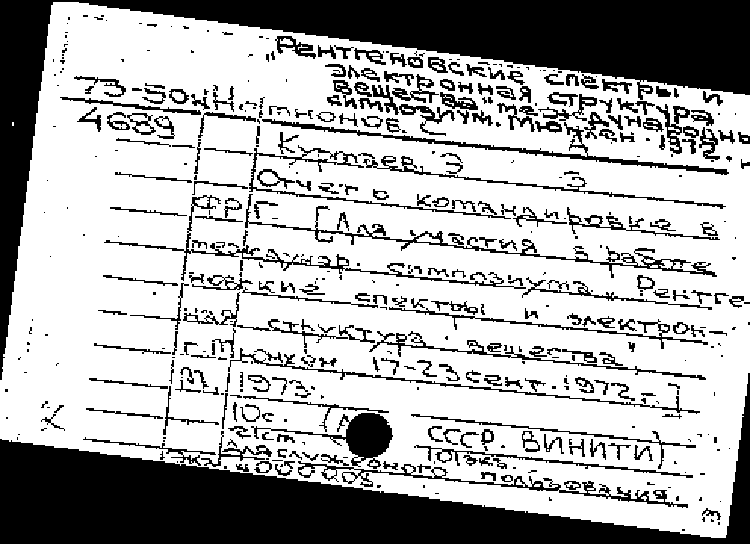 „Рентгеновские спектры и
электронная структура
вещества" междунар
симпозиум. Мюнхен. 1972.
73-504
4689
Курмаев, Э З
Отчет о командировке в
ФРГ. [Для участия в работе
междунар. симпозиума „Рентге-
новские спектры и электрон-
ная структура вещества",
г. Мюнхен, 17-23 сент. 1972.г.]
М., 1973.
10с. СССР. ВИНИТИ).
21см. 101экз.
Для служебного пользования.
Экз. №000008.